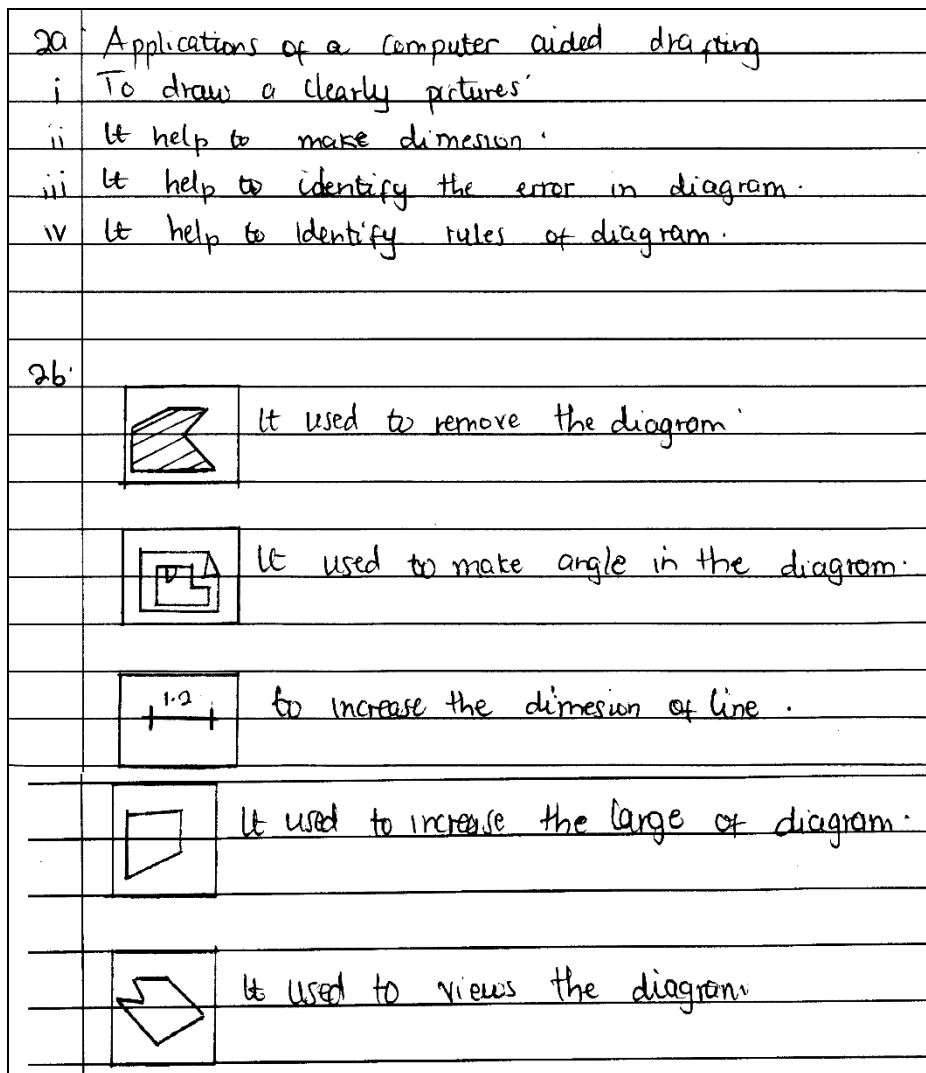 2a Applications of a computer aided drafting
i To draw a clearly pictures
ii It help to make dimesion.
iii It help to identify the error in diagram.
iv It help to identify rules of diagram.
2b.
It used to remove the diagram
It used to make angle in the diagram.
1.2 to increase the dimesion of line.
It used to increase the large of diagram.
It used to views the diagram.